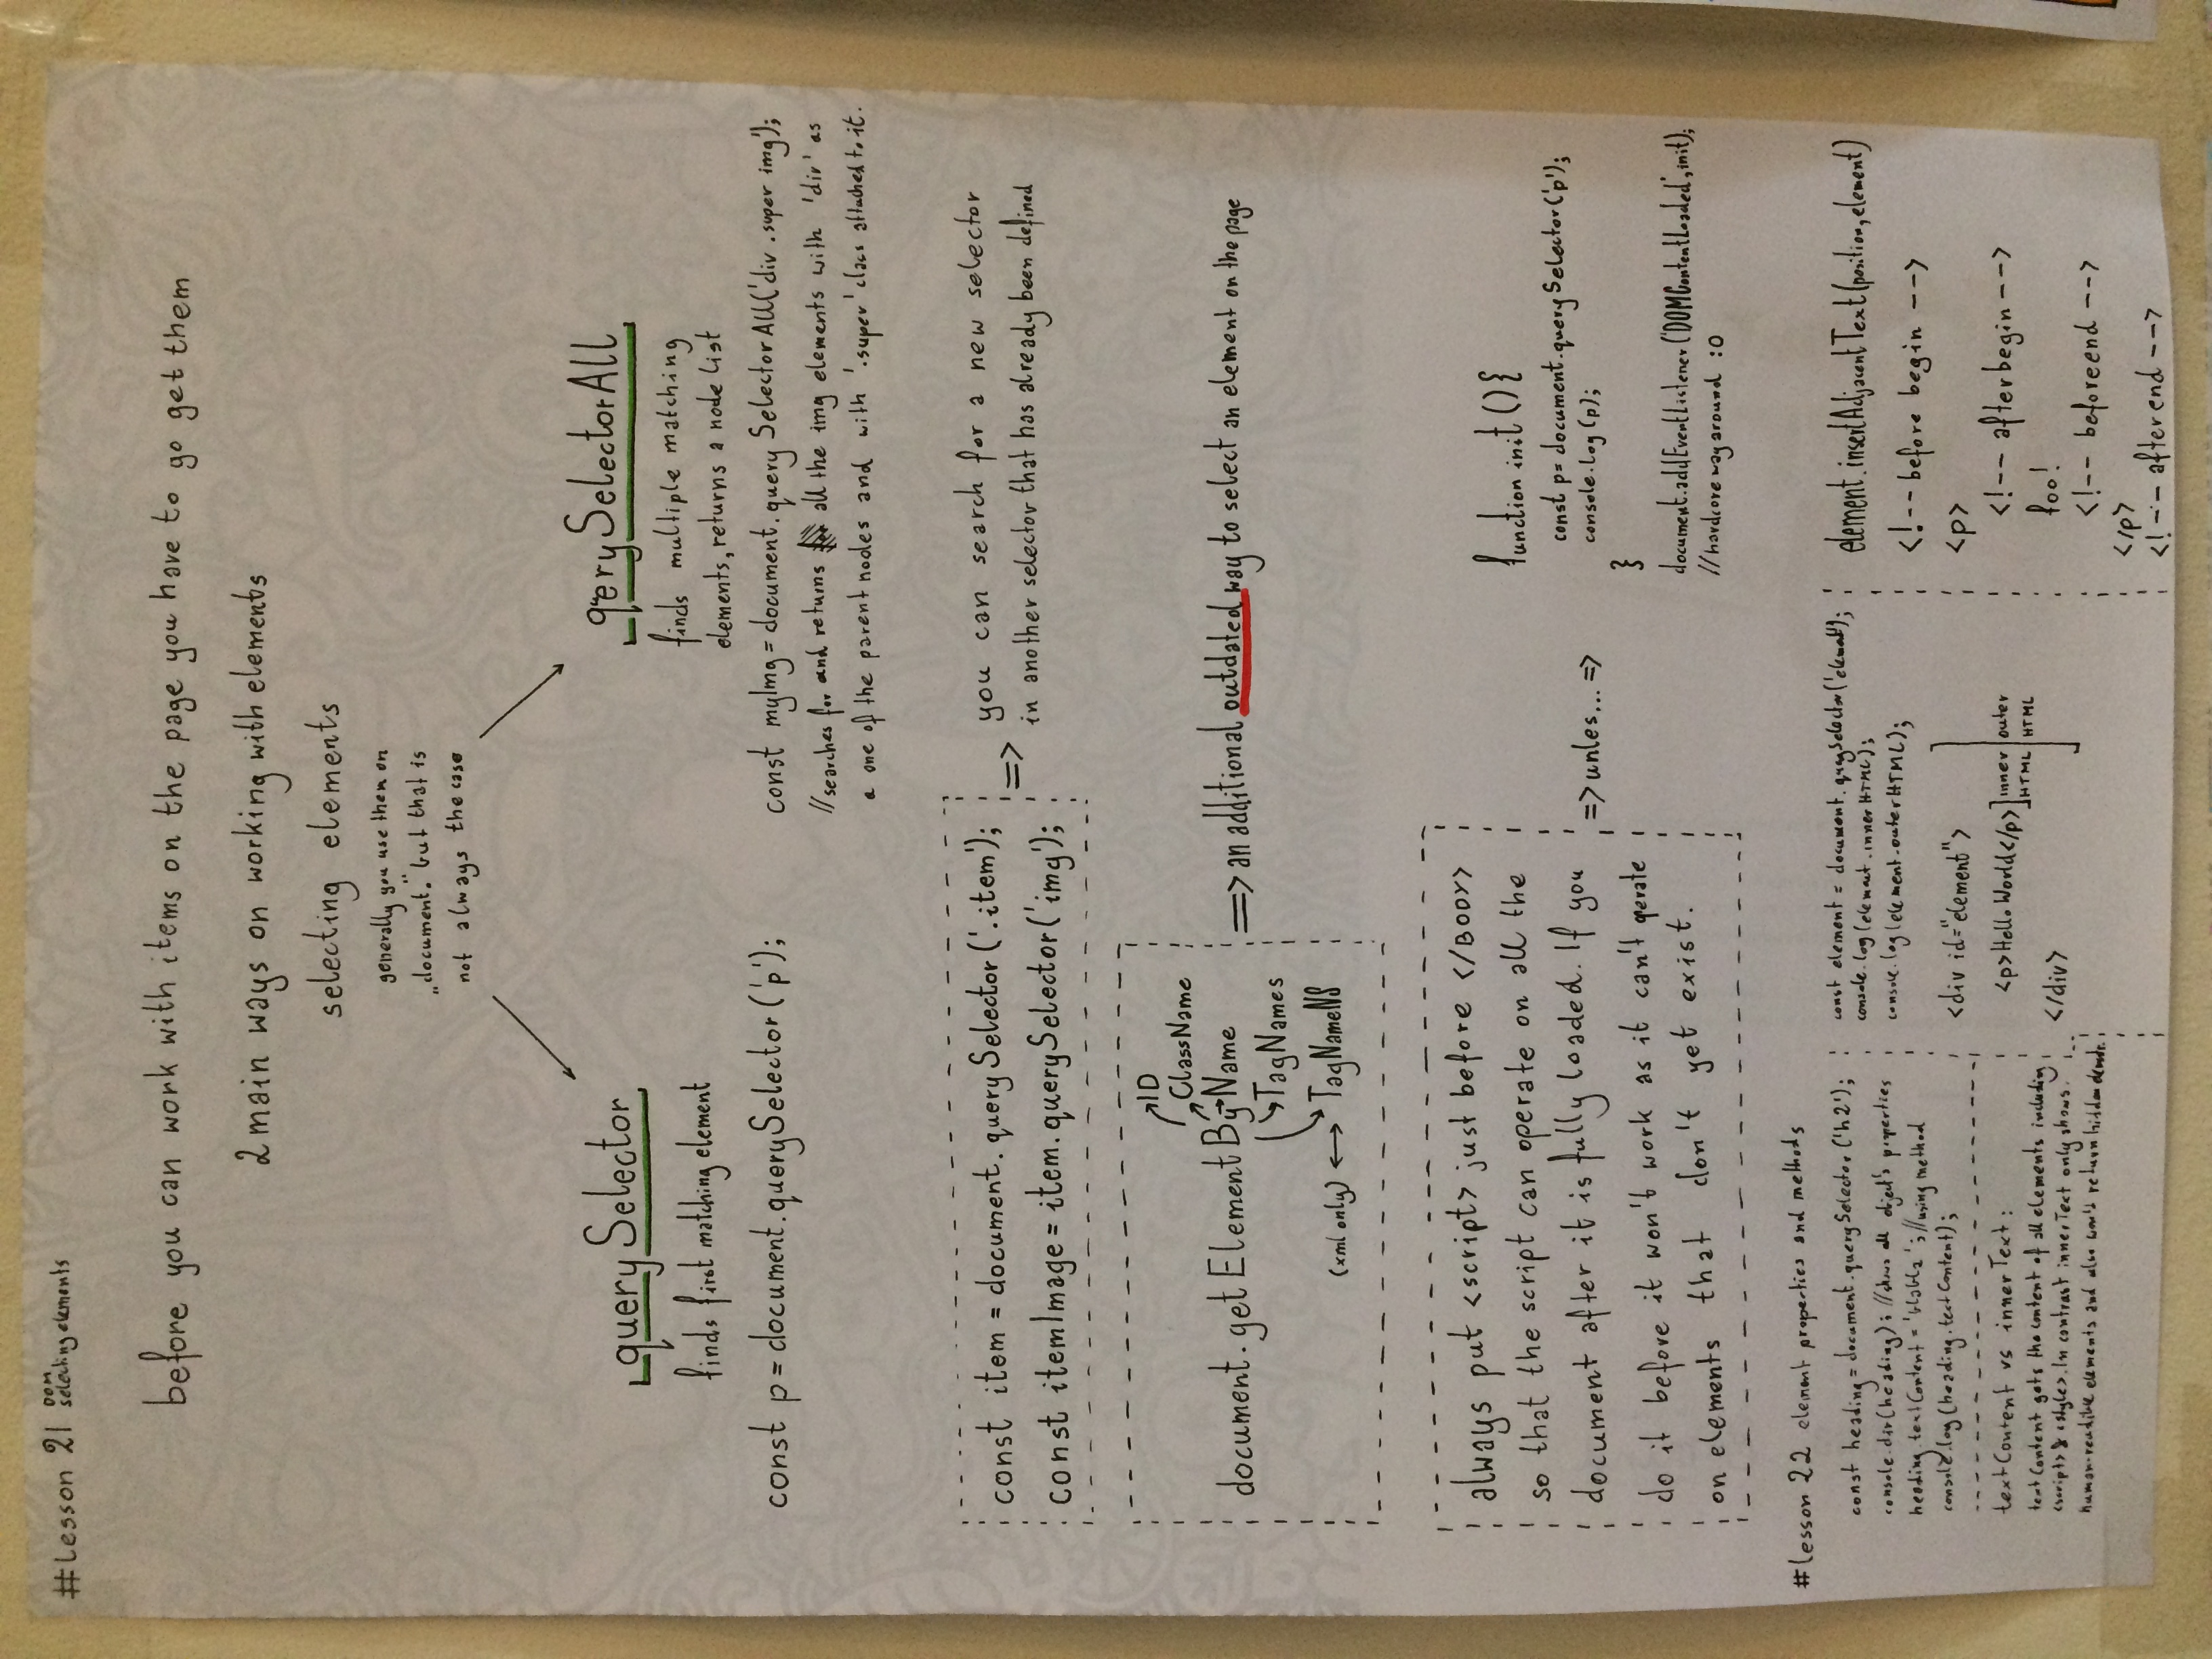 #Lesson 21 DOM selecting elements
before you can work with items on the page you have to go get them
2 main ways on working with elements
selecting elements
generally you use them on
„document.” but that is
not always the case
querySelector
finds first matching element
const p = document.querySelector('p');
qerySelectorAll
finds multiple matching
elements, returns a node list
const myImg = document.querySelectorAll('div .super img');
//searches for and returns all the img elements with 'div' as
a one of the parent nodes and with '.super' class attached to it.
const item = document.querySelector('.item');
const itemImage = item.querySelector('img');
=> you can search for a new selector
in another selector that has already been defined
ID
ClassName
document.getElementByName
TagNames
(xml only) <-> TagNameNS
=> an additional outdated way to select an element on the page
always put <script> just before </BODY>
so that the script can operate on all the
document after it is fully loaded. If you
do it before it won't work as it can't operate
on elements that don't yet exist.
=> unles... =>
function init () {
const p= document.querySelector('p');
console.log(p);
}
document.addEventListener('DOMContentLoaded', init);
//hardcore way around :O
#lesson 22 element properties and methods
const heading = document.querySelector('h2');
console.dir(heading); //shows all object's properties
heading.textContent = 'blabla'; //using method
console.log(heading.textContent);
textContent vs innerText:
textContent gets the content of all elements including
<script> & <style>. In contrast innerText only shows
human-readible elements and also won't return hidden
const element = document.querySelector('element');
console.log(element.innerHTML);
console.log(element.outerHTML);
<div id="element">
<p>Hello World</p> ] inner HTML ] outer HTML
</div>
element.insertAdjacentText(position, element)
<!-- before begin -->
<p>
<!-- afterbegin -->
foo!
<!-- beforeend -->
</p>
<!-- afterend -->